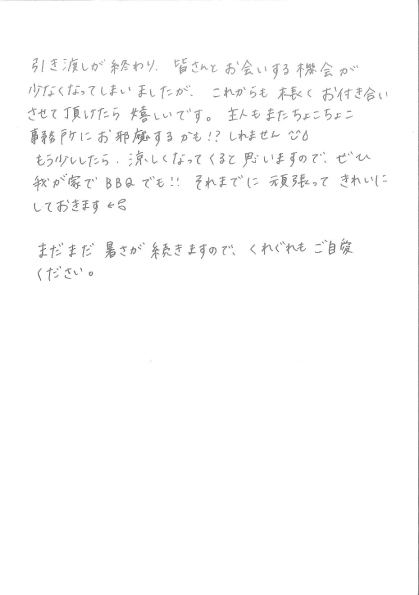 引き渡しが終わり、皆さんとお会いする機会が
少なくなってしまいましたが、これからも末長くお付き合い
させて頂けたら嬉しいです。主人もまたちょこちょこ
事務所にお邪魔するかも!?しれません
もう少ししたら、涼しくなってくると思いますので、ぜひ
我が家でBBQでも!!それまでに頑張ってきれいに
しておきます
まだまだ暑さが続きますので、くれぐれもご自愛
ください。